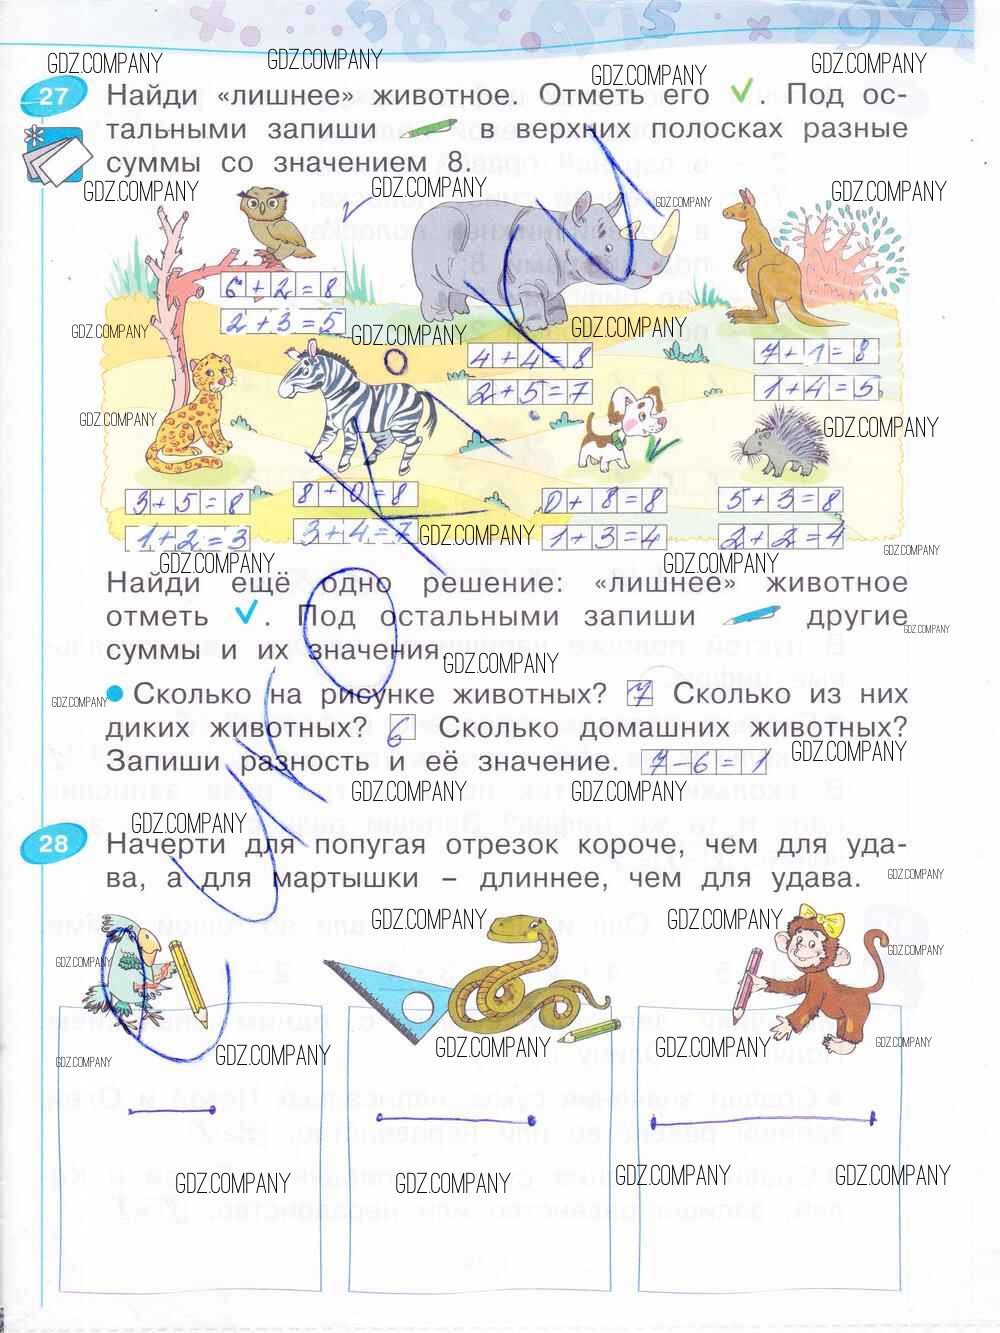 GDZ.COMPANY GDZ.COMPANY GDZ.COMPANY GDZ.COMPANY
27 Найди «лишнее» животное. Отметь его ✓. Под ос-
тальными запиши в верхних полосках разные
суммы со значением 8.
GDZ.COMPANY GDZ.COMPANY GDZ.COMPANY GDZ.COMPANY
6+2=8
2+3=5
GDZ.COMPANY GDZ.COMPANY GDZ.COMPANY
4+4=8 7+1=8
2+5=7 1+4=5
GDZ.COMPANY GDZ.COMPANY
3+5=8 8+0=8 0+8=8 5+3=8
1+2=3 3+4=7 1+3=4 2+2=4
GDZ.COMPANY GDZ.COMPANY GDZ.COMPANY GDZ.COMPANY
Найди ещё одно решение: «лишнее» животное
отметь ✓. Под остальными запиши другие
GDZ.COMPANY
суммы и их значения.
GDZ.COMPANY
• Сколько на рисунке животных? 7 Сколько из них
GDZ.COMPANY
диких животных? 6 Сколько домашних животных?
GDZ.COMPANY
Запиши разность и её значение. 7-6=1
GDZ.COMPANY GDZ.COMPANY
GDZ.COMPANY
28 Начерти для попугая отрезок короче, чем для уда-
ва, а для мартышки – длиннее, чем для удава.
GDZ.COMPANY
GDZ.COMPANY GDZ.COMPANY
GDZ.COMPANY GDZ.COMPANY
GDZ.COMPANY GDZ.COMPANY GDZ.COMPANY GDZ.COMPANY GDZ.COMPANY
GDZ.COMPANY GDZ.COMPANY GDZ.COMPANY GDZ.COMPANY